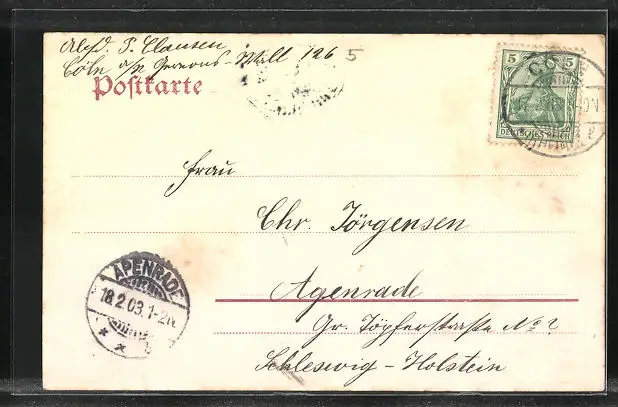 Absd. P. Clausen
Cöln a/R Gereons-Wall 126
5
Postkarte
5 5
DEUTSCHES REICH
Frau
Chr. Jörgensen
Apenrade
Gr. Töpferstraße No 2
Schleswig-Holstein
APENRADE
18.2.03.1-2N.
* *